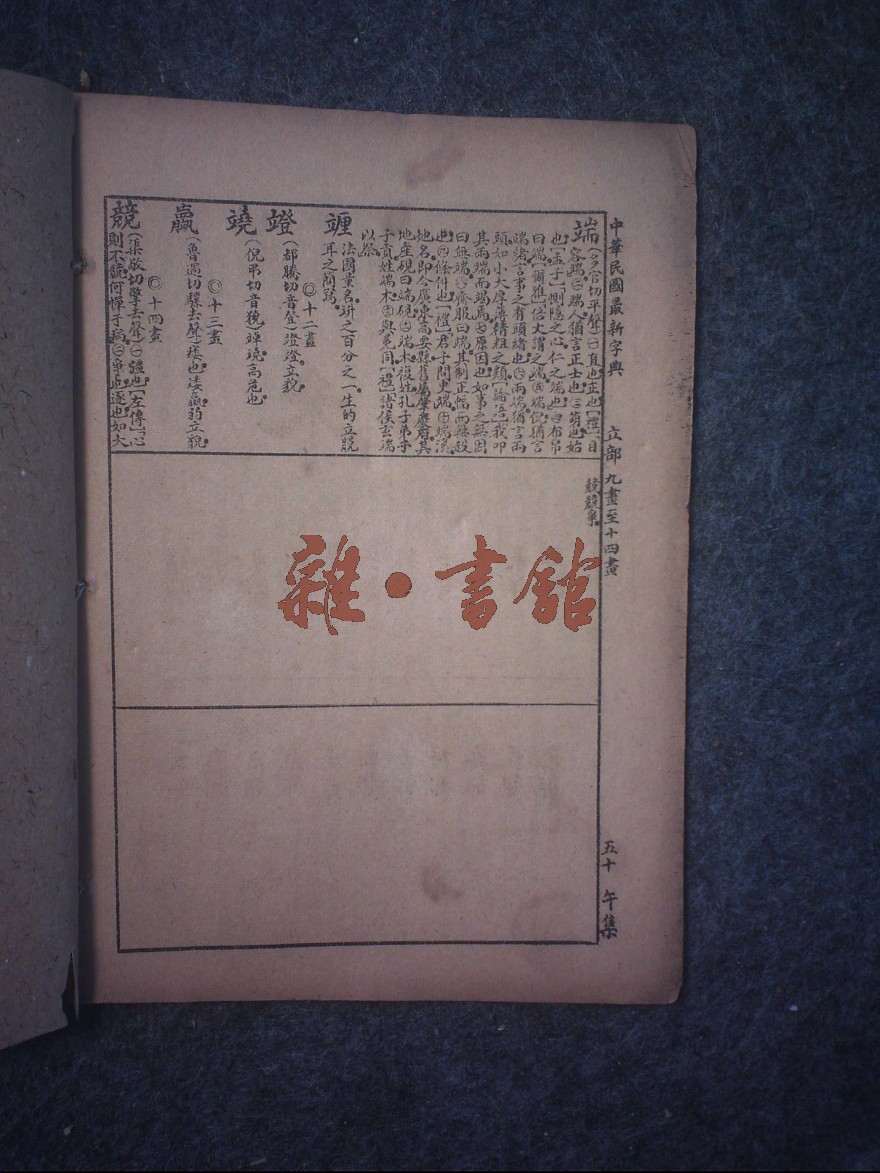 中華民國最新字典 立部 九畫至十四畫 五十 午集
端(多官切平聲)㊀直也正也[禮]目
容端㊁端人猶言正士也㊂萌也始
也[孟子]惻隱之心仁之端也㊃布帛
曰端[爾雅]倍丈謂之端㊄端倪猶言
端緒言事之有頭緒也㊅兩端猶言兩
頭如小大厚薄精粗之類[論語]我叩
其兩端而竭焉㊆原因也如事之無因
曰無端㊇齊服曰端其制正幅而無殺
也㊈條件也[禮]君子問更端㊉端溪
地名即今廣東高要縣舊屬肇慶府其
地產硯曰端硯 端木複姓孔子弟子
子貢姓端木 與冕同[禮]諸侯玄端
以祭
竰 法國量名竔之百分之一生的立脫
耳之簡寫
◎十二畫
竳(都騰切音登)竳竳立貌
◎十三畫
(倪弔切音 ) 高危也
◎十四畫
(魯過切騾去聲)痿也矮 弱立貌
競(渠敬切擎去聲)㊀彊也[左傳]心
則不競何憚于病㊁爭也逐也如大
競競爭
雜·書館